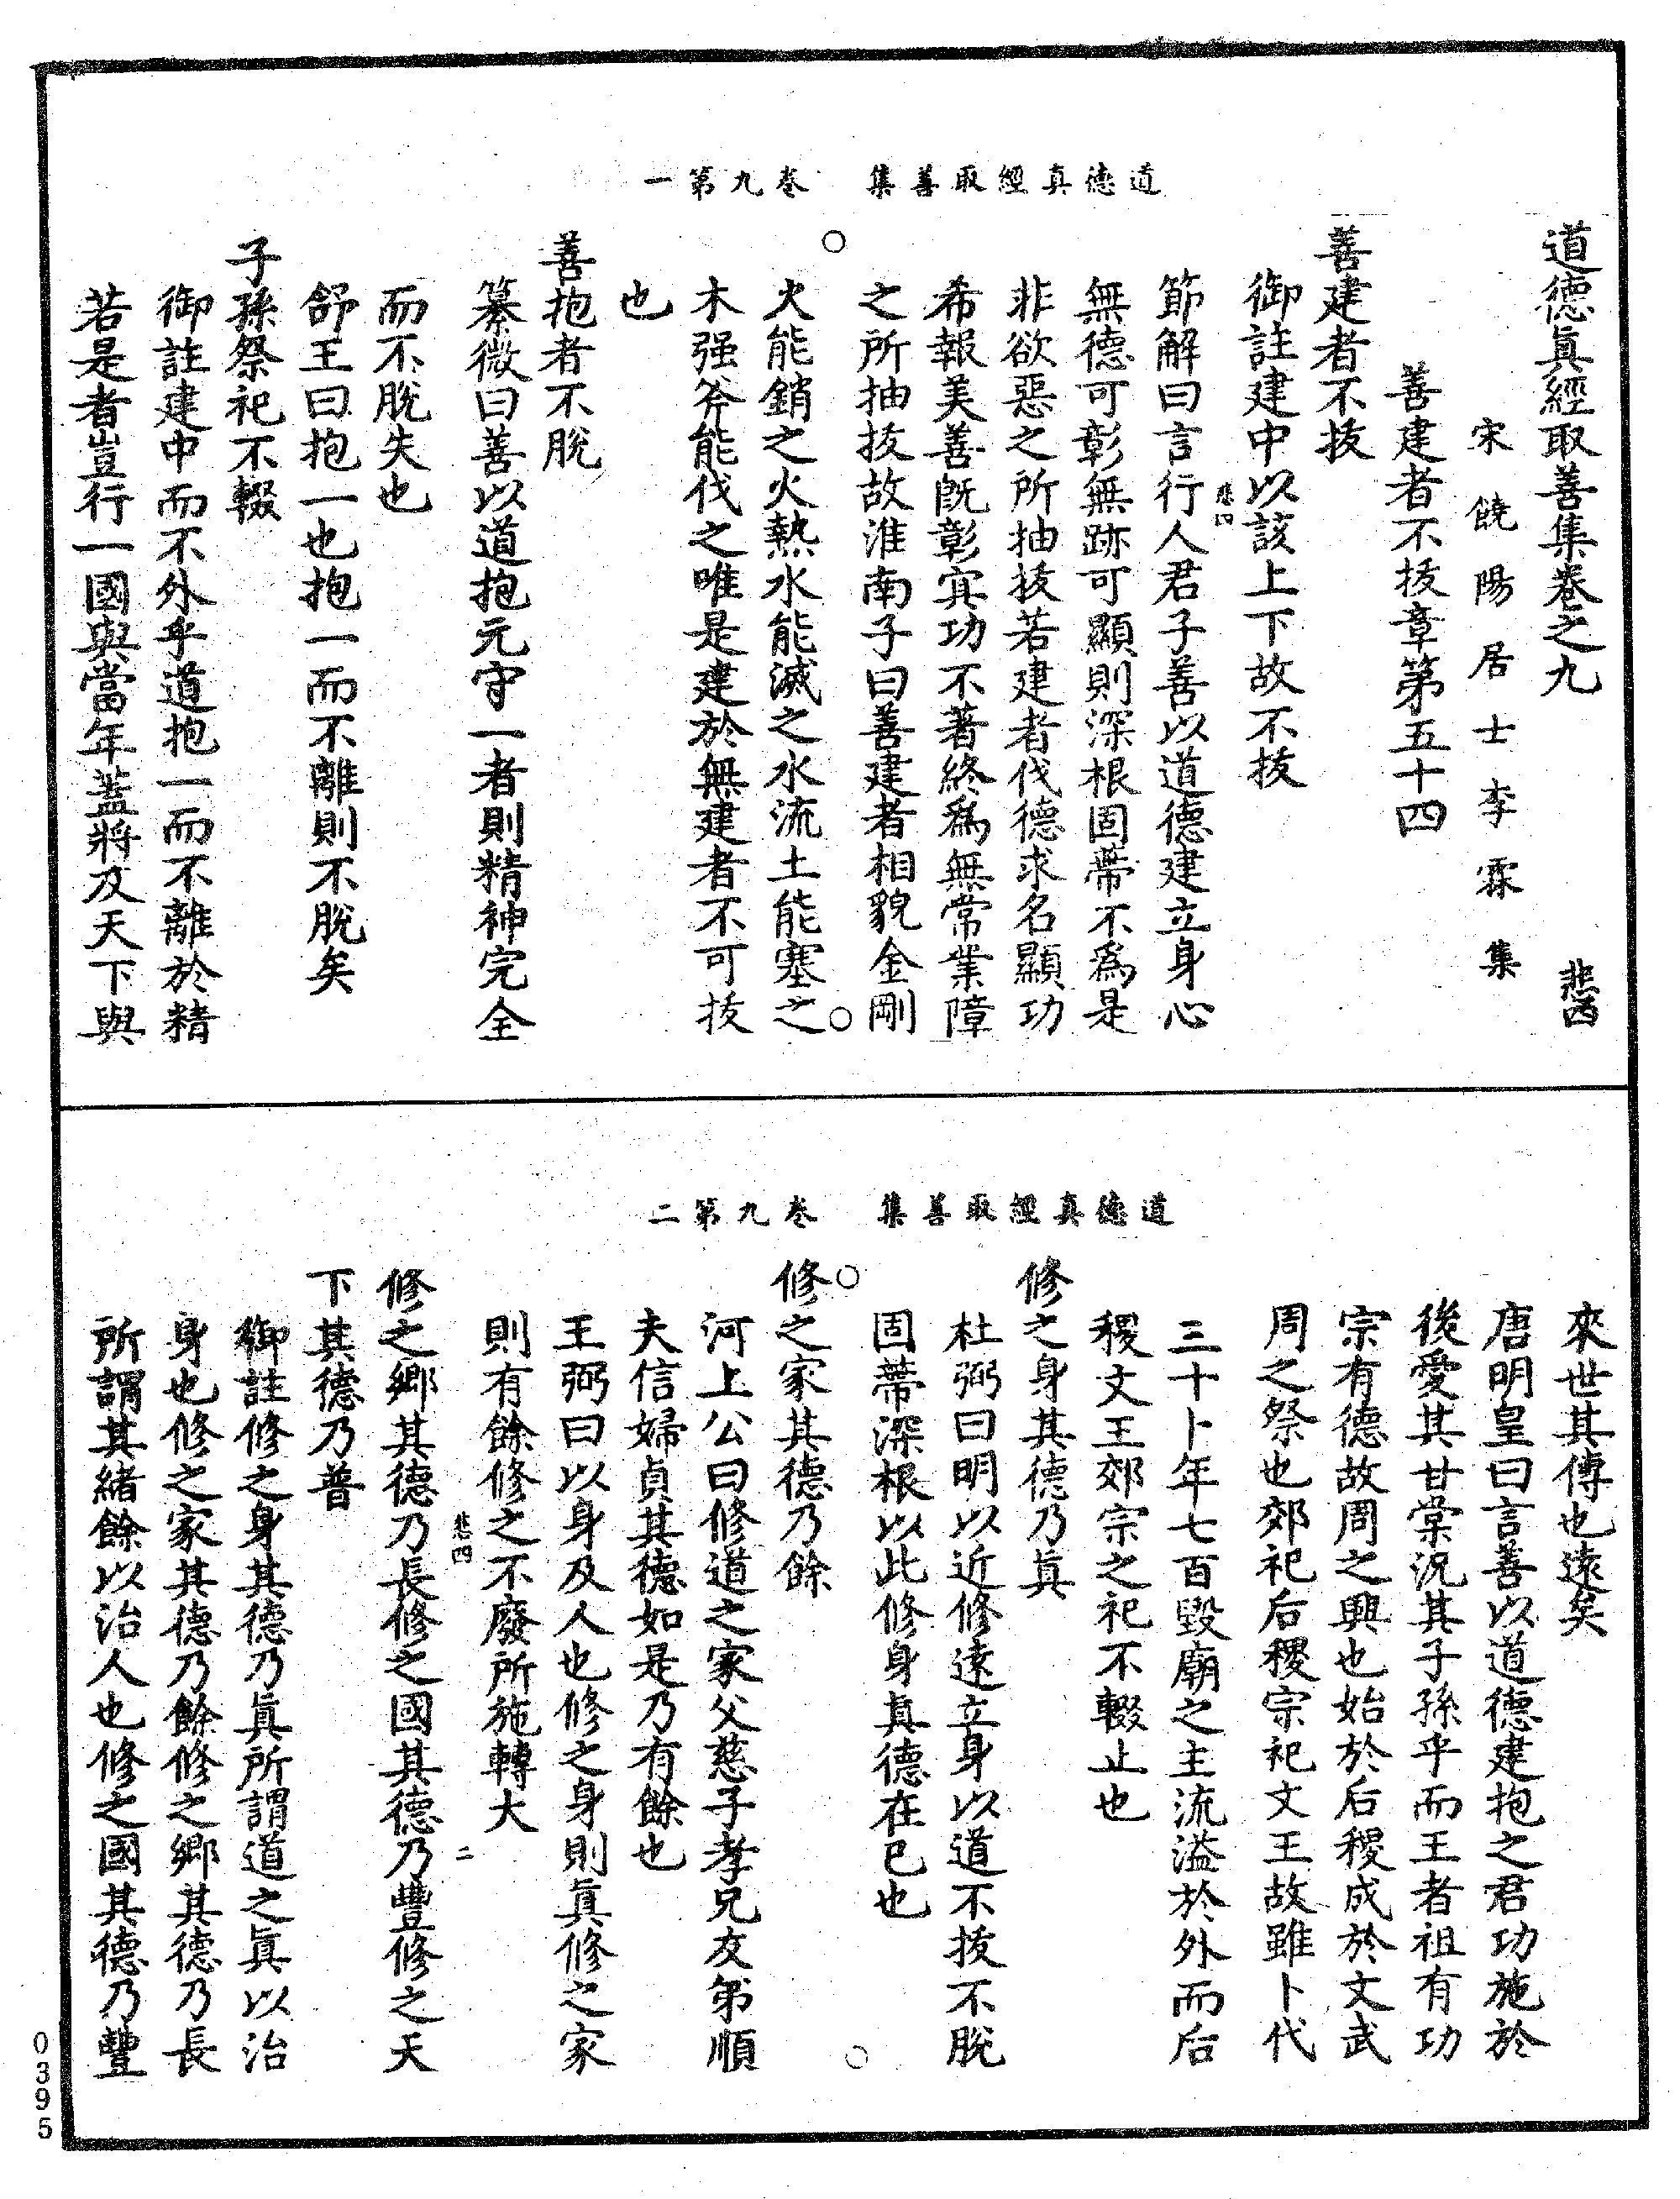 道德真經取善集　卷九第一
道德眞經取善集卷之九　悲四
宋饒陽居士李霖集
善建者不拔章第五十四
善建者不拔
御註建中以該上下故不拔
悲四
節解曰言行人君子善以道德建立身心
無德可彰無跡可顯則深根固蔕不爲是
非欲惡之所抽拔若建者伐德求名顯功
希報美善旣彰寘功不著終爲無常業障
之所抽拔故淮南子曰善建者相貌金剛
火能銷之火熱水能滅之水流土能塞之
木强斧能伐之唯是建於無建者不可拔
也
善抱者不脫
纂微曰善以道抱元守一者則精神完全
而不脫失也
舒王曰抱一也抱一而不離則不脫矣
子孫祭祀不輟
御註建中而不外乎道抱一而不離於精
若是者豈行一國與當年蓋將及天下與
道德真經取善集　卷九第二
來世其傳也遠矣
唐明皇曰言善以道德建抱之君功施於
後愛其甘棠況其子孫乎而王者祖有功
宗有德故周之興也始於后稷成於文武
周之祭也郊祀后稷宗祀文王故雖卜代
三十卜年七百毀廟之主流溢於外而后
稷文王郊宗之祀不輟止也
修之身其德乃眞
杜弼曰明以近修遠立身以道不拔不脫
固蔕深根以此修身真德在已也
修之家其德乃餘
河上公曰修道之家父慈子孝兄友弟順
夫信婦貞其德如是乃有餘也
王弼曰以身及人也修之身則眞修之家
則有餘修之不廢所施轉大
悲四　二
修之鄉其德乃長修之國其德乃豐修之天
下其德乃普
御註修之身其德乃眞所謂道之眞以治
身也修之家其德乃餘修之鄉其德乃長
所謂其緒餘以治人也修之國其德乃豐
0395